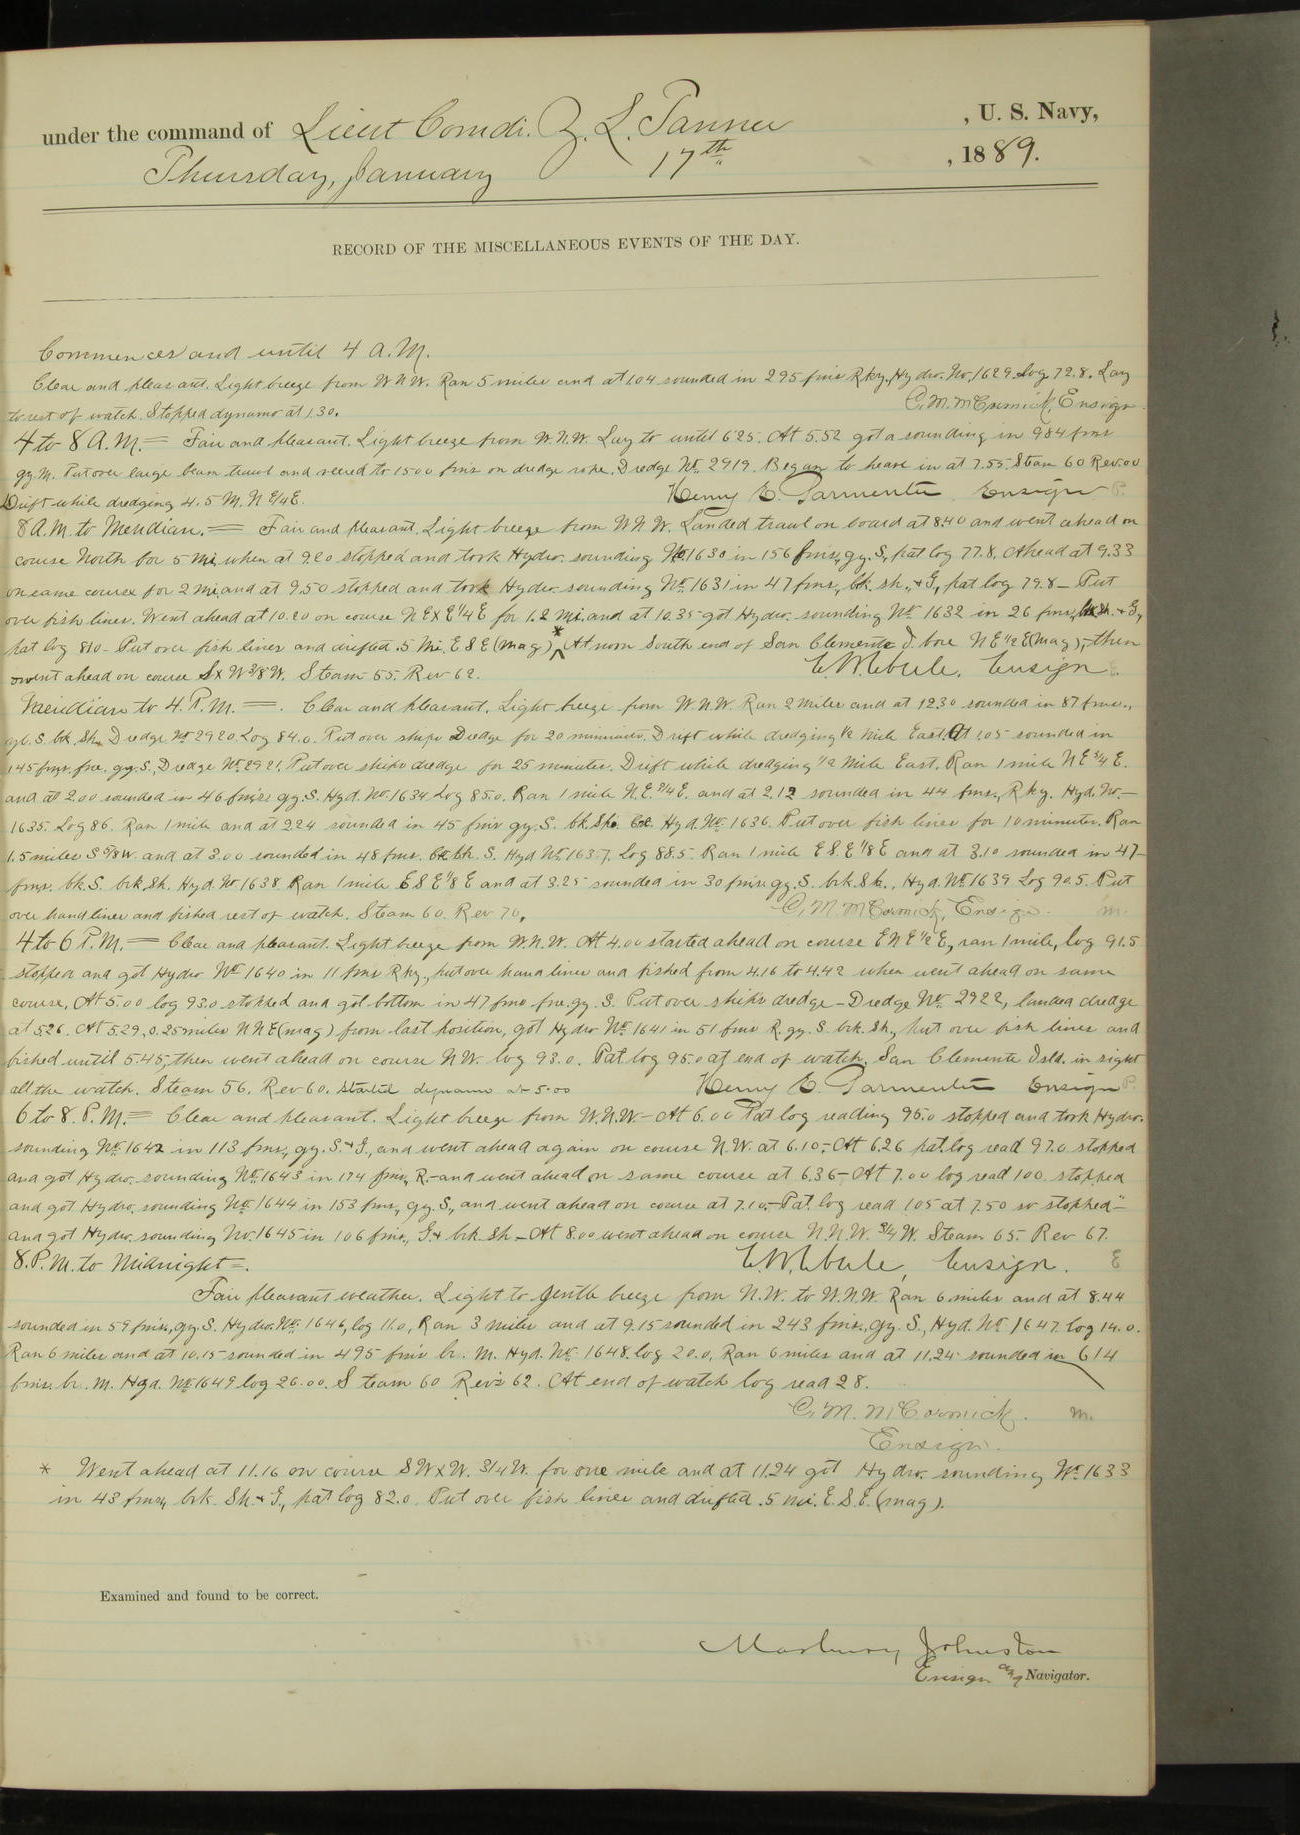 under the command of Lieut Comdr. Z. L. Tanner , U. S. Navy,
Thursday, January 17th , 1889.
RECORD OF THE MISCELLANEOUS EVENTS OF THE DAY.
Commences and until 4 A.M.
Clear and pleasant. Light breeze from W N W. Ran 5 miles and at 1.04 sounded in 295 fms Rky. Hydro. No. 1629. Log 72.8. Lay
to rest of watch. Stopped dynamo at 1.30. C. M. McCormick, Ensign
4 to 8 A.M. = Fair and pleasant. Light breeze from W.N.W. Lay to until 6.25. At 5.52 got a sounding in 984 fms
gy. M. Put over large beam trawl and veered to 1500 fms on dredge rope. Dredge No. 2919. Began to heave in at 7.55. Steam 60 Rev. 00
Drift while dredging 4.5 M. N E/4 E. Henry E. Parmenter Ensign P.
8 A.M. to Meridian. = Fair and pleasant. Light breeze from W N W. Landed trawl on board at 8.40 and went ahead on
course North for 5 Mi, when at 9.20 stopped and took Hydro. sounding No. 1630 in 156 fms., gy. S, pat log 77.8. Ahead at 9.33
on same course for 2 mi, and at 9.50 stopped and took Hydro sounding No. 1631 in 47 fms, bk. sh., & G, pat log 79.8 – Put
over fish lines. Went ahead at 10.20 on course N E x E 1/4 E for 1.2 Mi. and at 10.35 got Hydro. sounding No. 1632 in 26 fms, & G,
pat log 81.0 – Put over fish lines and drifted .5 Mi. E S E (mag) * At noon South end of San Clemente I. bore N E 1/2 E (Mag); – then
went ahead on course S x W 3/8 W. Steam 55. Rev 62. E. W. Eberle, Ensign E.
Meridian to 4. P.M. =. Clear and pleasant. Light breeze from W N W. Ran 2 miles and at 12.30 sounded in 87 fms.,
S. bk. Sh. Dredge No 2920. Log 84.0. Put over ships Dredge for 20 minutes. Drift while dredging 1/2 mile East. At 1.05 sounded in
145 fms. fne. gy. S., Dredge No. 2921. Put over ships dredge for 25 minutes. Drift while dredging 1/2 Mile East. Ran 1 mile N E 3/4 E.
and at 2.00 sounded in 46 fms gy. S. Hyd. No. 1634 Log 85.0. Ran 1 mile N. E. 3/4 E. and at 2.12 sounded in 44 fms, Rky. Hyd. No. –
1635. Log 86. Ran 1 mile and at 2.24 sounded in 45 fms gy. S. bk. Sh. Hyd. No. 1636. Put over fish lines for 10 minutes. Ran
1.5 miles S 5/8 W. and at 3.00 sounded in 48 fms. bk. S. Hyd No. 1637. Log 88.5. Ran 1 mile E S. E 1/8 E and at 3.10 sounded in 47 –
fms. bk. S. brk. Sh. Hyd. No. 1638. Ran 1 mile E S E 1/8 E and at 3.25 sounded in 30 fms gy. S. brk. Sh., Hyd. No. 1639 Log 90.5. Put
over hand lines and fished rest of watch. Steam 60. Rev 70. C. M. McCormick, Ensign. m.
4 to 6 P.M. = Clear and pleasant. Light breeze from W. N. W. At 4.00 started ahead on course E N E 1/2 E, ran 1 mile, log 91.5
stopped and got Hydro No. 1640 in 11 fms Rky., put over hand lines and fished from 4.16 to 4.42 when went ahead on same
course. At 5.00 log 93.0 stopped and got bottom in 47 fms fne. gy. S. Put over ship's dredge – Dredge No. 2922, landed dredge
at 5.26. At 5.29, 0.25 miles N N E (mag) from last position, got Hydro No. 1641 in 51 fms R. gy. S. brk. Sh., put over fish lines and
fished until 5.45, then went ahead on course N W. log 93.0. Pat. log 95.0 at end of watch. San Clemente Isld. in sight
all the watch. Steam 56. Rev 60. Started dynamo at 5.00 Henry E. Parmenter Ensign P.
6 to 8. P.M. = Clear and pleasant. Light breeze from W.N.W. – At 6.00 Pat log reading 95.0 stopped and took Hydro.
sounding No. 1642 in 113 fms, gy. S. & G., and went ahead again on course N.W. at 6.10; – At 6.26 pat. log read 97.0 stopped
and got Hydro. sounding No. 1643 in 174 fms, R. – and went ahead on same course at 6.36 – At 7.00 log read 100. stopped
and got Hydro. sounding No. 1644 in 153 fms, gy. S., and went ahead on course at 7.10. – Pat. log read 105 at 7.50 so stopped –
and got Hydro. sounding No. 1645 in 106 fms., G. & brk. sh – At 8.00 went ahead on course N. N. W. 3/4 W. Steam 65. Rev 67.
8. P.M. to Midnight =. E. W. Eberle, Ensign. E
Fair pleasant weather. Light to gentle breeze from N. W. to W. N. W. Ran 6 miles and at 8.44
sounded in 59 fms, gy. S. Hydro. No. 1646, log 11.0, Ran 3 miles and at 9.15 sounded in 243 fms., gy. S., Hyd. No. 1647. log 14.0.
Ran 6 miles and at 10.15 sounded in 495 fms br. M. Hyd. No. 1648. log 20.0. Ran 6 miles and at 11.24 sounded in 614
fms. br. M. Hyd. No. 1649 log 26.00. Steam 60 Rev's 62. At end of watch log read 28.
C. M. McCormick. m.
Ensign.
* Went ahead at 11.16 on course S W x W. 3/4 W. for one mile and at 11.24 got Hydro. sounding No. 1633
in 43 fms, brk. Sh. & G., pat log 82.0. Put over fish lines and drifted .5 mi. E. S. E. (mag).
Examined and found to be correct.
Marbury Johnston
Ensign and Navigator.